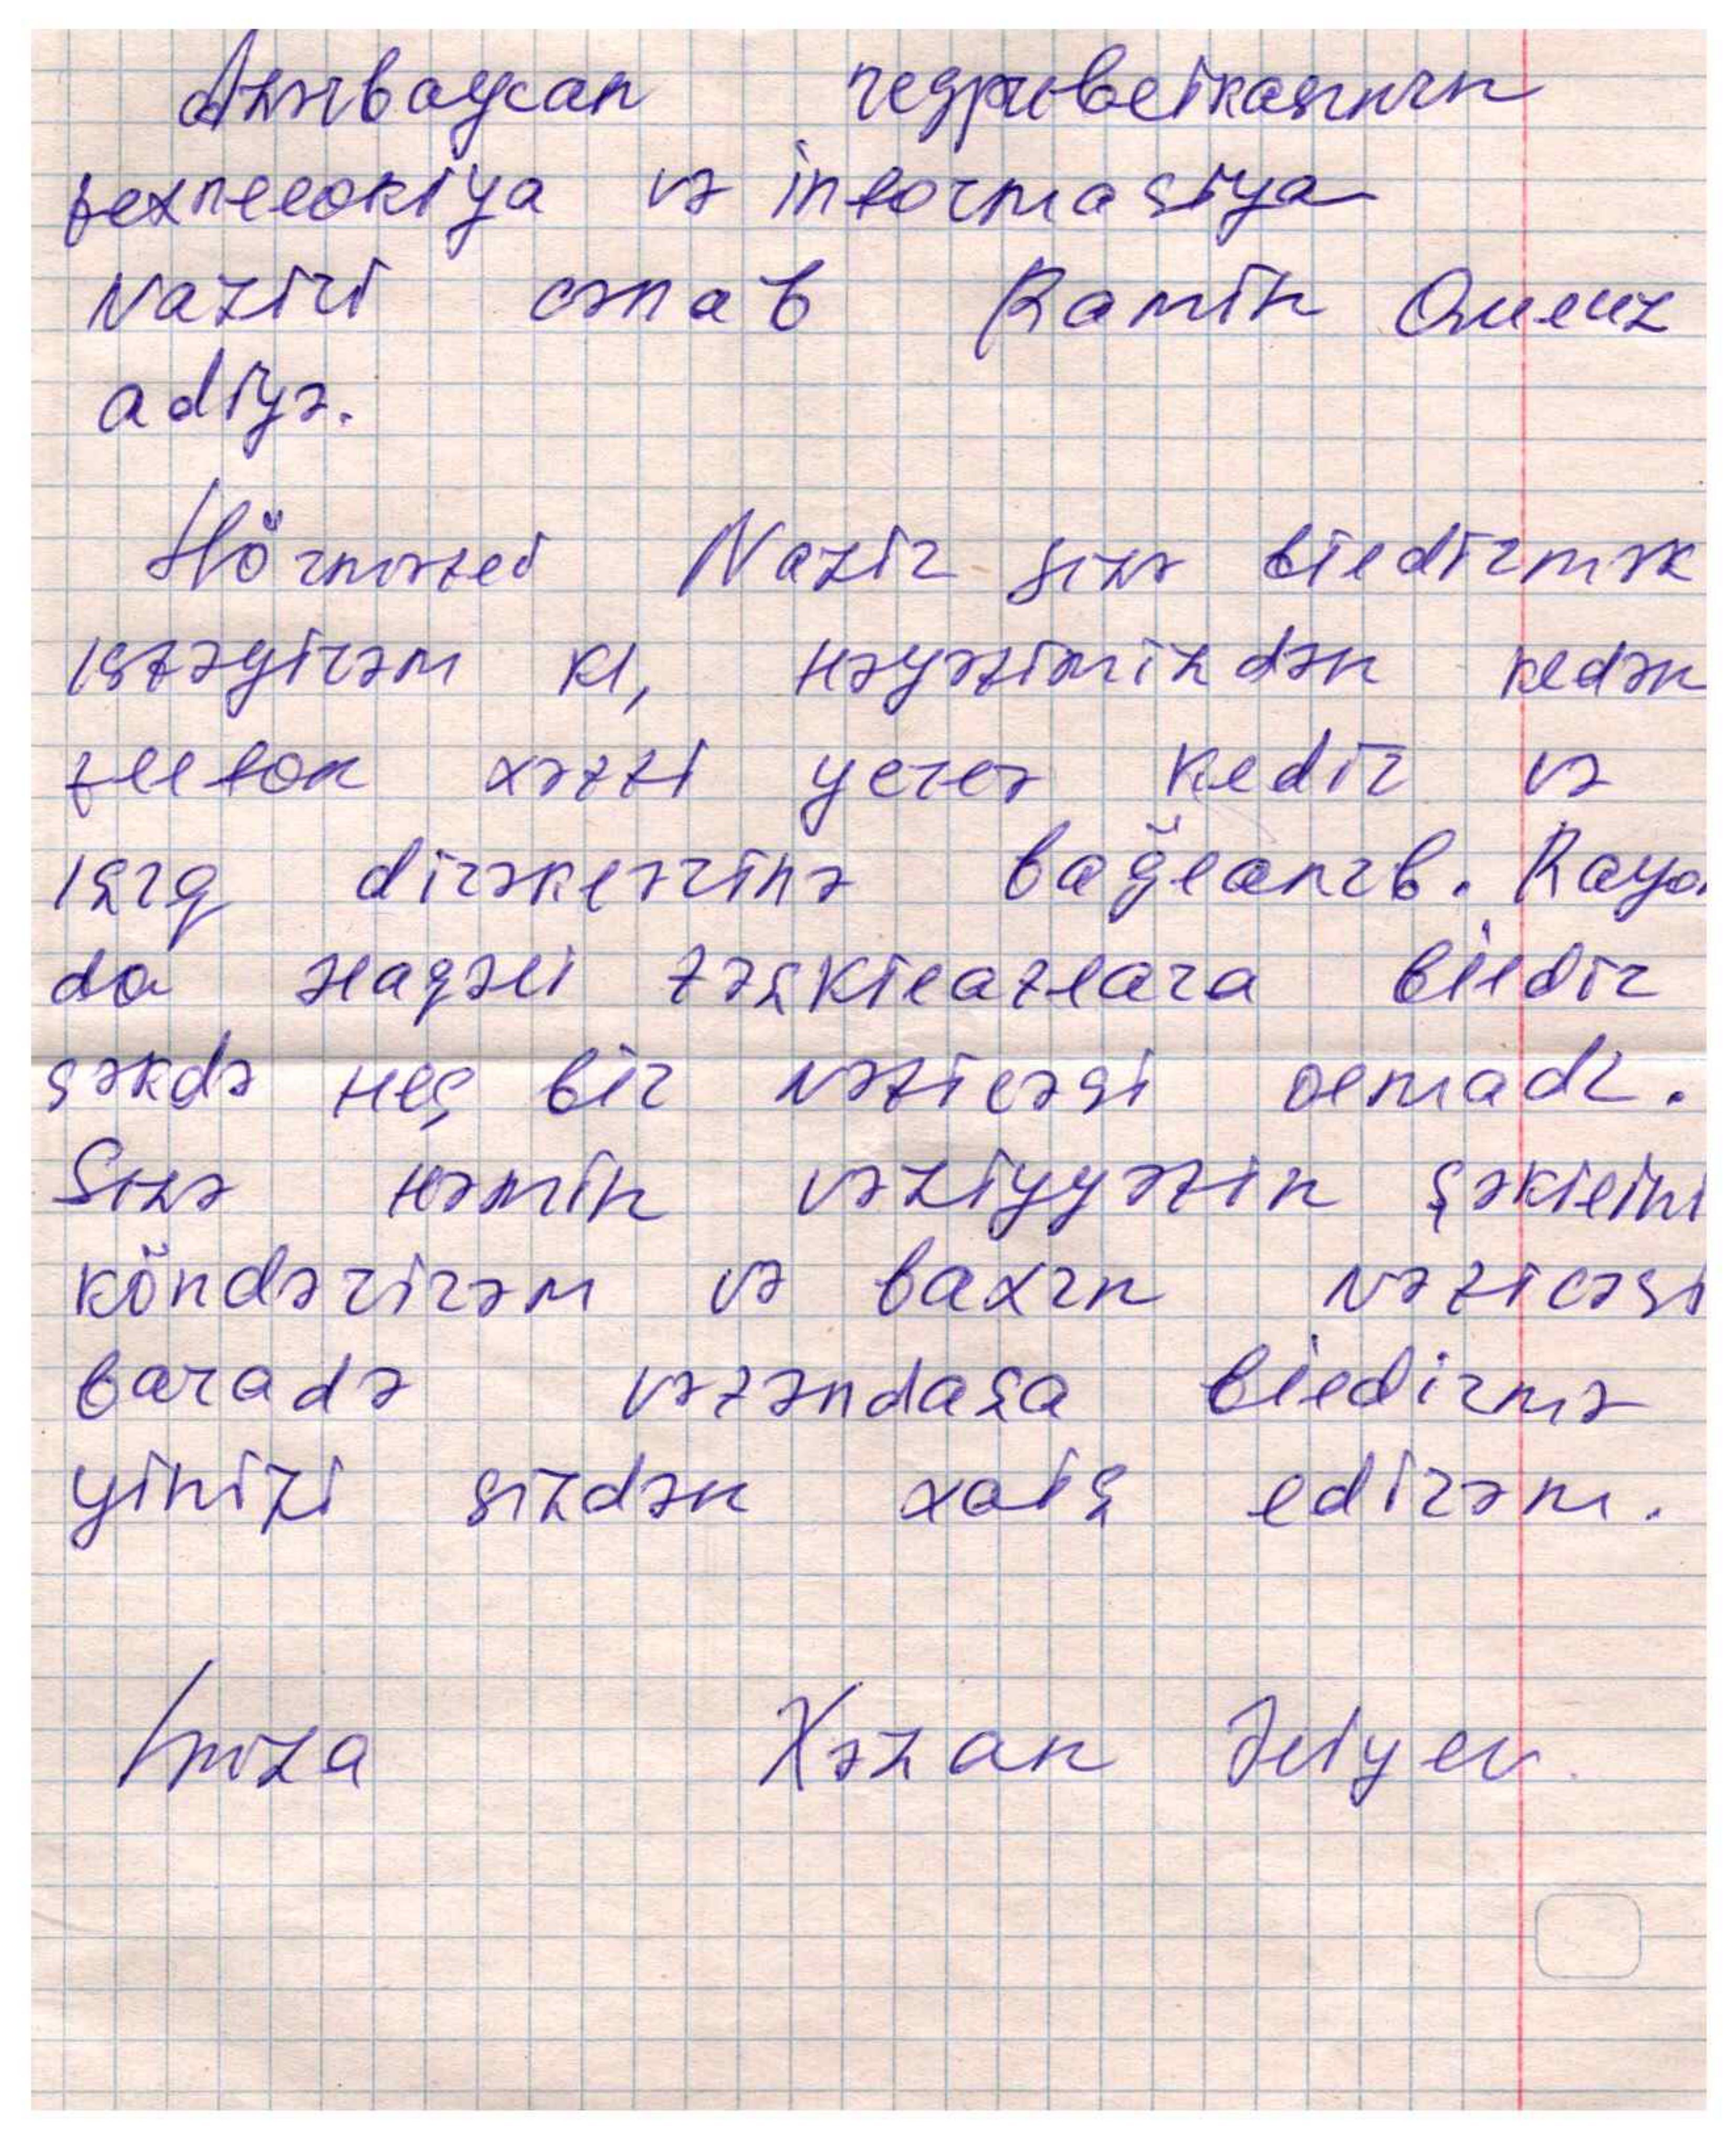 Azərbaycan regpublikasının
texnelokiya və informasiya
Naziri cənab Ramin Quluz
adiyə.
Hörmətli Nazir sizə bildirmək
istəyirəm ki, həyətimizdən kedən
telefon xətti yerlə kedir və
işıq dirəklərinə bağlanıb. Rayon
da əlaqəli təşkilatlara bildir
səkdə heç bir nəticəsi olmadı.
Sizə həmin vəziyyətin şəkilini
köndərirəm və baxın nəticəsi
baradə vətəndaşa bildirmə
yinizi sizdən xaiş edirəm.
İmza Xəzan Əliyev.